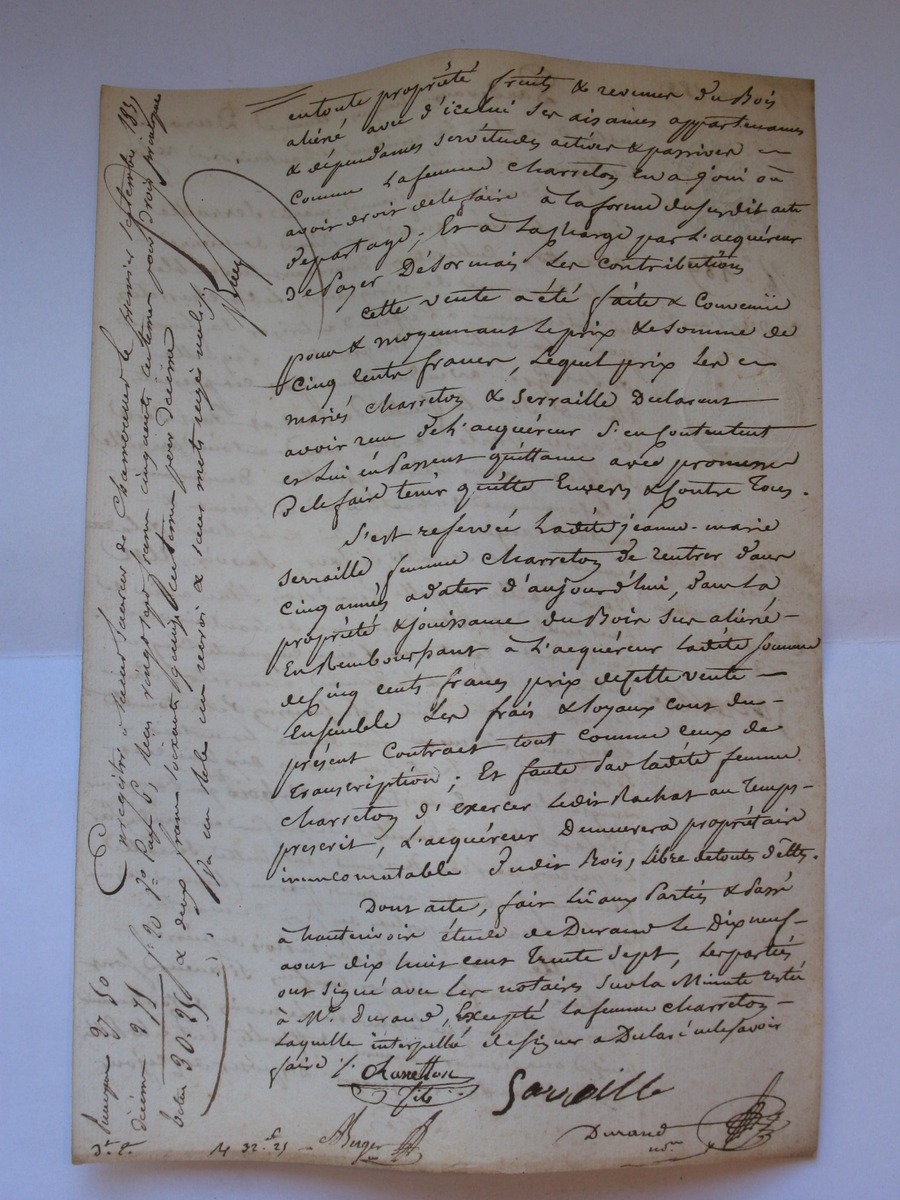 en toute propriété fruits & revenus du Bois
aliéné avec d'icelui ses aisances appartenances
& dépendances servitudes actives & passives
Comme la femme Charreton en a joui ou
avoir droit de le faire à la forme du susdit acte
de partage; Et à la charge par l'acquéreur
de Payer Désormais les Contributions
Cette vente a été faite & Convenüe
pour & moyennant le prix & Somme de
Cinq Cents francs, lequel prix les
mariés Charreton & Serraille Déclarent
avoir reçu de l'acquéreur S'en Contentent
et Lui en Passent quittance avec promesse
De le faire tenir quitte Envers & Contre Tous.
S'est réservée Ladite jeanne-marie
Serraille femme Charreton de rentrer dans
Cinq années a dater d'aujourd'hui, dans La
propriété & jouissance du Bois sus aliéné
En Remboursant à L'acquéreur Ladite Somme
de Cinq cents francs prix de Cette vente
Ensemble Les frais & loyaux cout du
présent Contract tout comme ceux de
Transcription; Et faute par Ladite femme
Charreton d'exercer Ledit Rachat au Temps
prescrit, L'acquéreur Demeurera propriétaire
incommutable Dudit Bois, Libre de touts
Dont acte, fait Lû aux Parties & Passé
à hauterivoire étude de Durand le Dix neuf
aout dix huit cent Trente Sept, Les parties
ont Signé avec Les notaires Sur la Minute restée
à Me. Durand, Excepté la femme Charreton
Laquelle interpellée de Signer a Déclaré ne le Savoir
faire
Charretton
fils
Serraille
Berger
Durand
Enregistré à Saint Laurent de Chamousset le premier Septembre 1837
fo 20 Vo Case 6, Reçu vingt sept francs cinquante centimes pour droit principal
& deux francs soixante quinze centimes pour décime
principal 27 50
décime 2 75
total 30 25